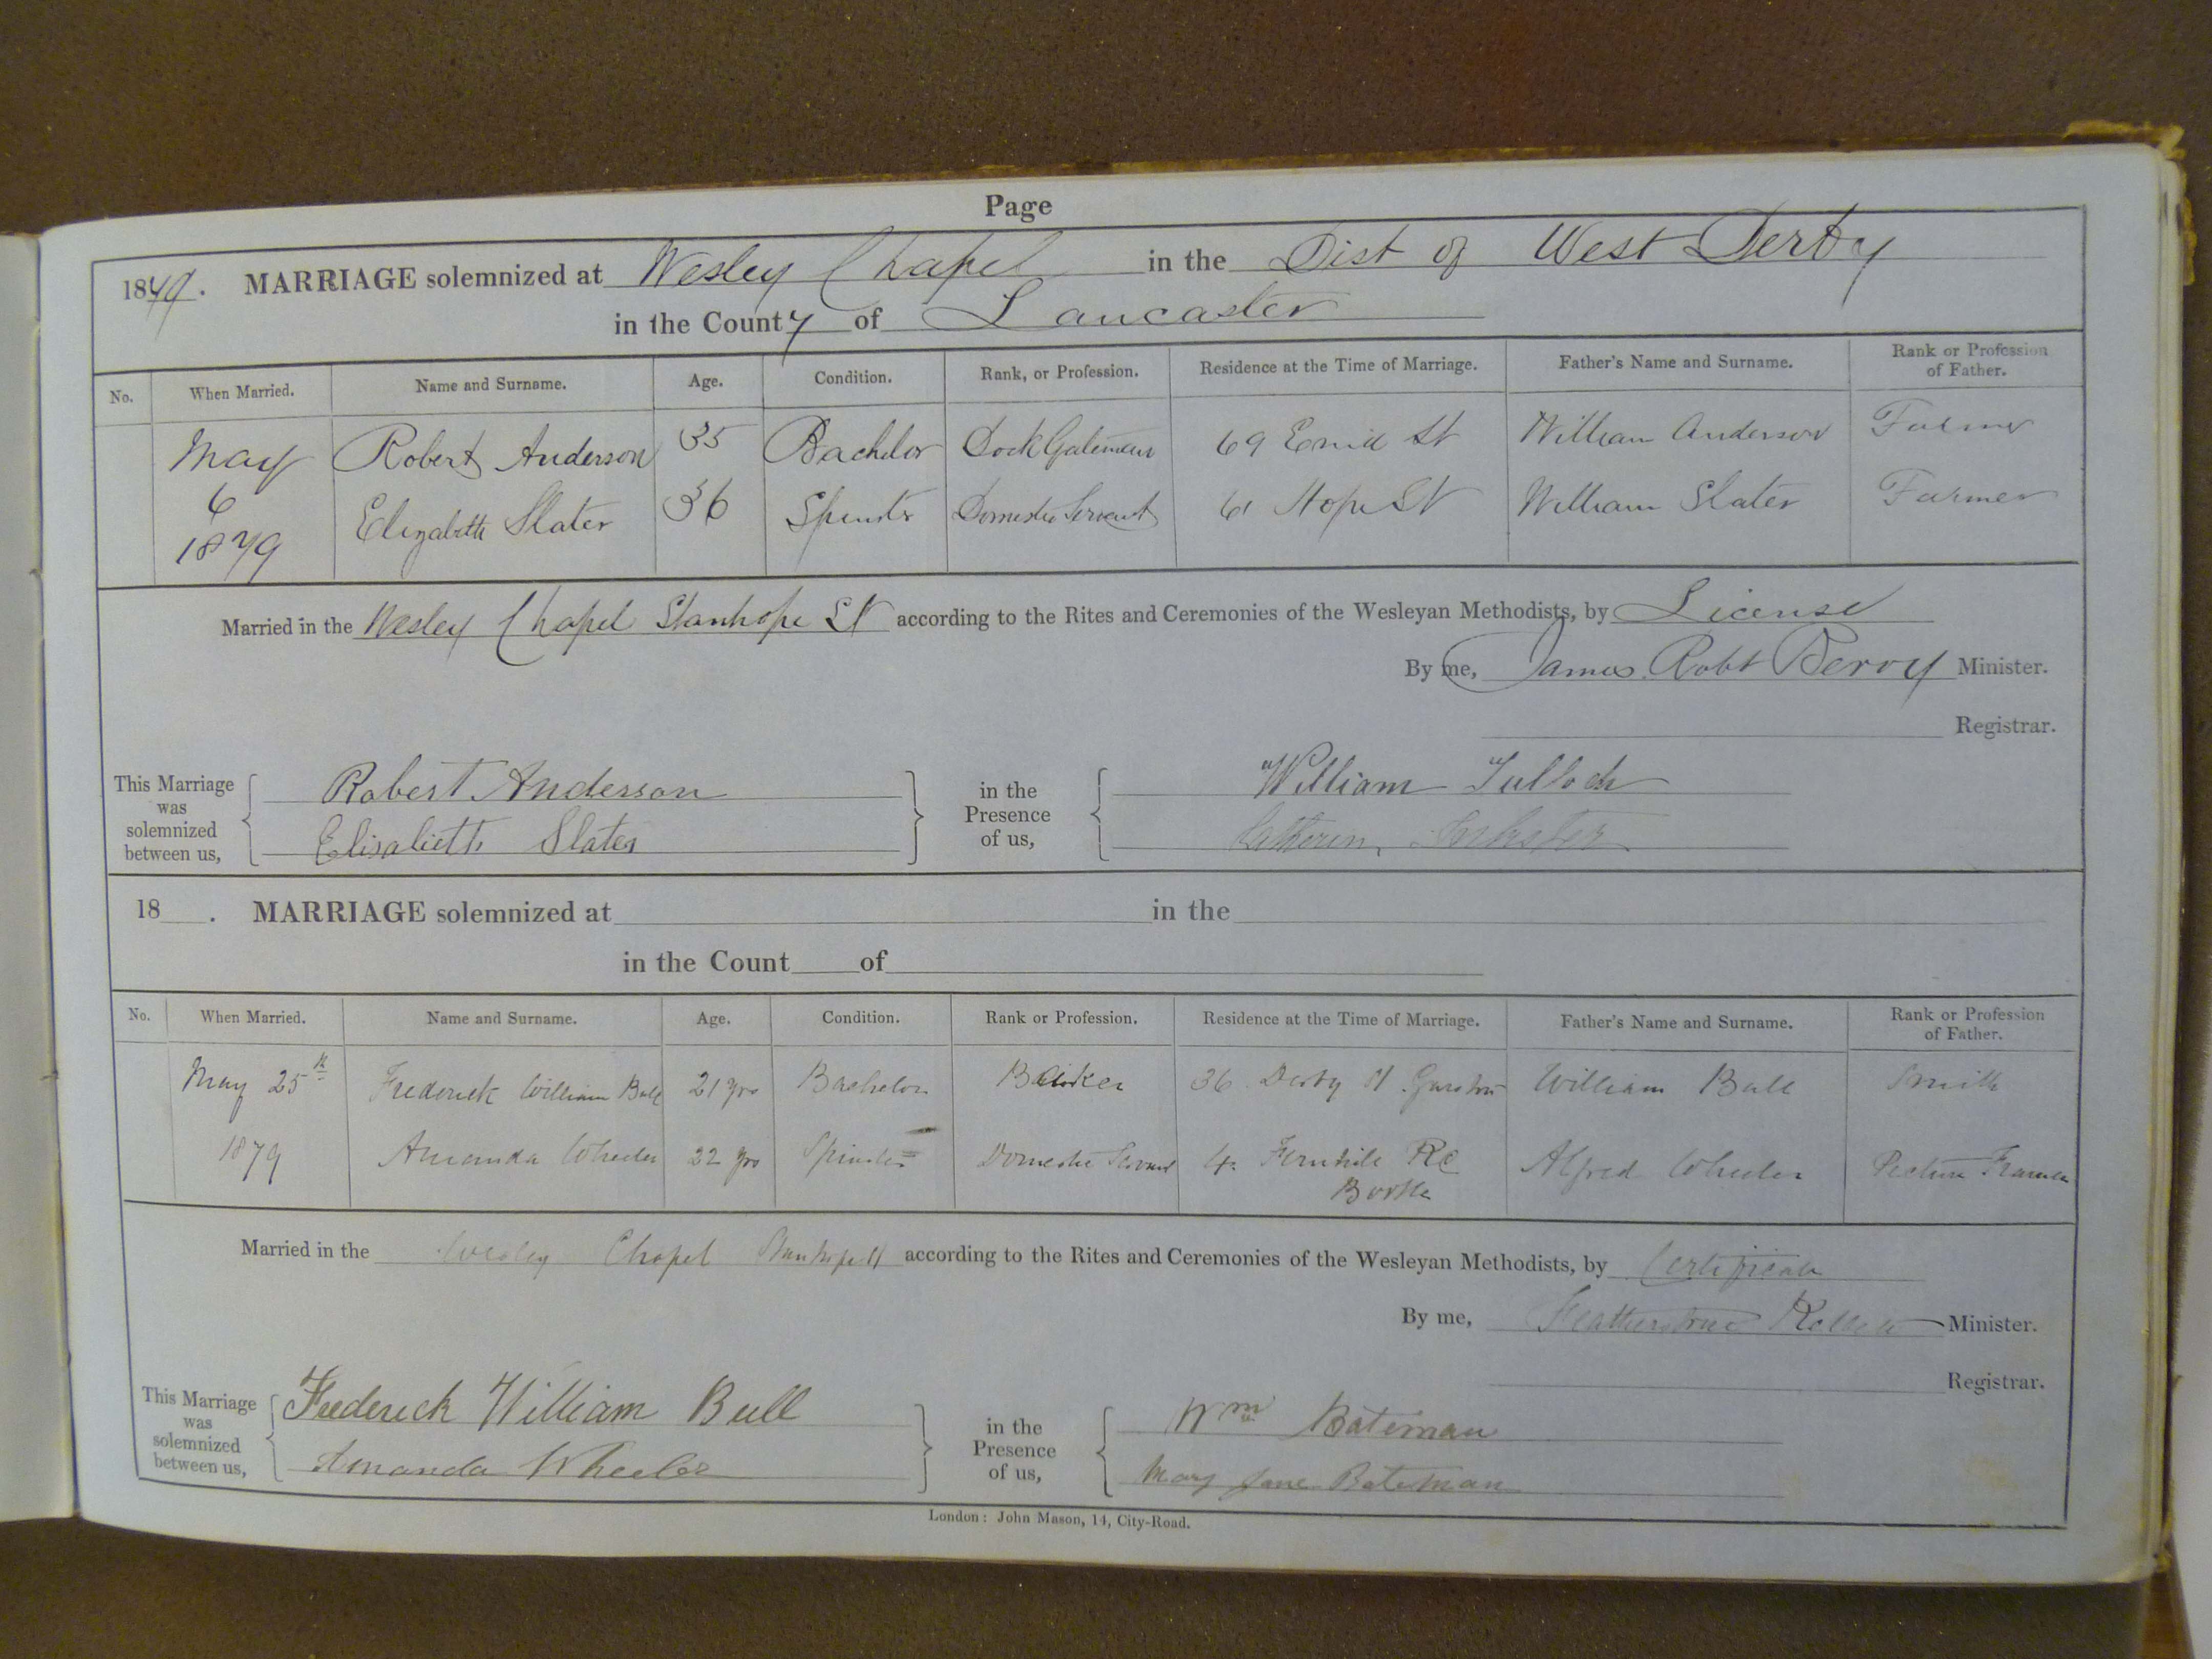 Page
1879. MARRIAGE solemnized at Wesley Chapel in the Dist of West Derby
in the County of Lancaster
No. When Married. Name and Surname. Age. Condition. Rank, or Profession. Residence at the Time of Marriage. Father's Name and Surname. Rank or Profession of Father.
May 6 1879 Robert Anderson 35 Bachelor Dock Gateman 69 Enid St William Anderson Farmer
Elizabeth Slater 36 Spinster Domestic Servant 61 Hope St William Slater Farmer
Married in the Wesley Chapel Stanhope St according to the Rites and Ceremonies of the Wesleyan Methodists, by License
By me, James Robt Berry Minister.
Registrar.
This Marriage was solemnized between us, Robert Anderson Elisabeth Slater in the Presence of us, William Tulloch Webster
18 . MARRIAGE solemnized at in the
in the Count of
No. When Married. Name and Surname. Age. Condition. Rank or Profession. Residence at the Time of Marriage. Father's Name and Surname. Rank or Profession of Father.
May 25th 1879 Frederick William Bull 21 yrs Bachelor Baker 36 Derby St Garston William Bull Smith
Amanda Wheeler 22 yrs Spinster Domestic Servant 4 Fernhill Rd Bootle Alfred Wheeler Picture Framer
Married in the Wesley Chapel Stanhope St according to the Rites and Ceremonies of the Wesleyan Methodists, by Certificate
By me, Featherstone Kellett Minister.
Registrar.
This Marriage was solemnized between us, Frederick William Bull Amanda Wheeler in the Presence of us, Wm Bateman Mary Jane Bateman
London: John Mason, 14, City-Road.